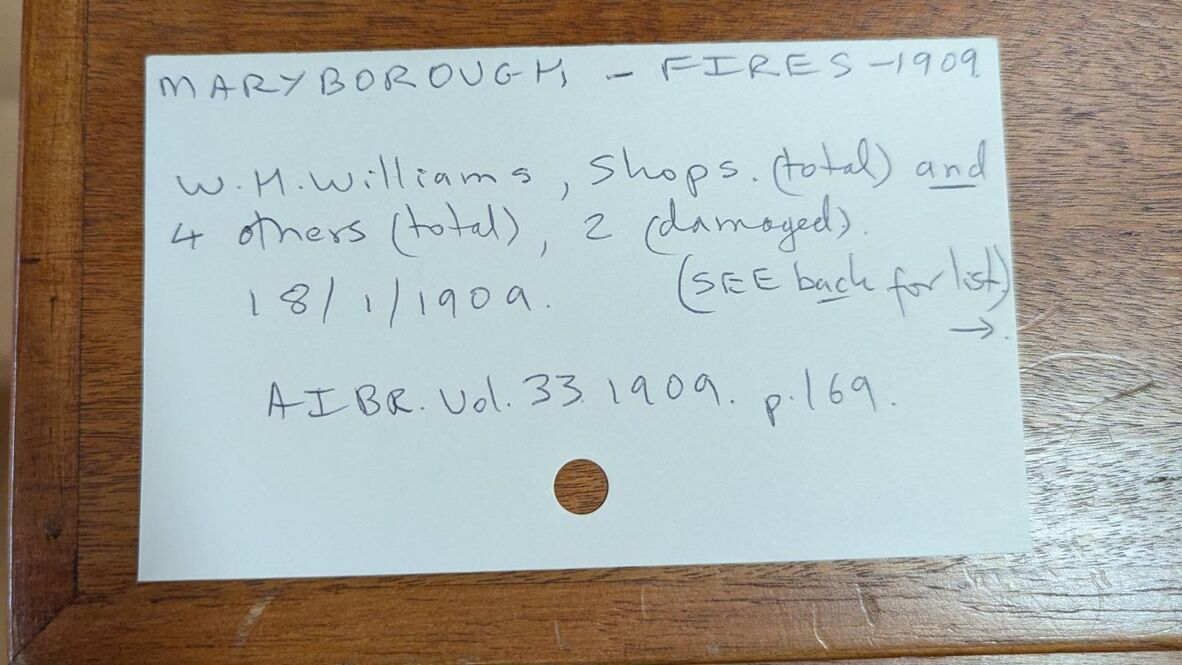 MARYBOROUGH - FIRES - 1909
W.H. Williams, Shops. (total) and
4 others (total), 2 (damaged).
18/1/1909. (SEE back for list)
→.
AIBR. Vol. 33. 1909. p.169.